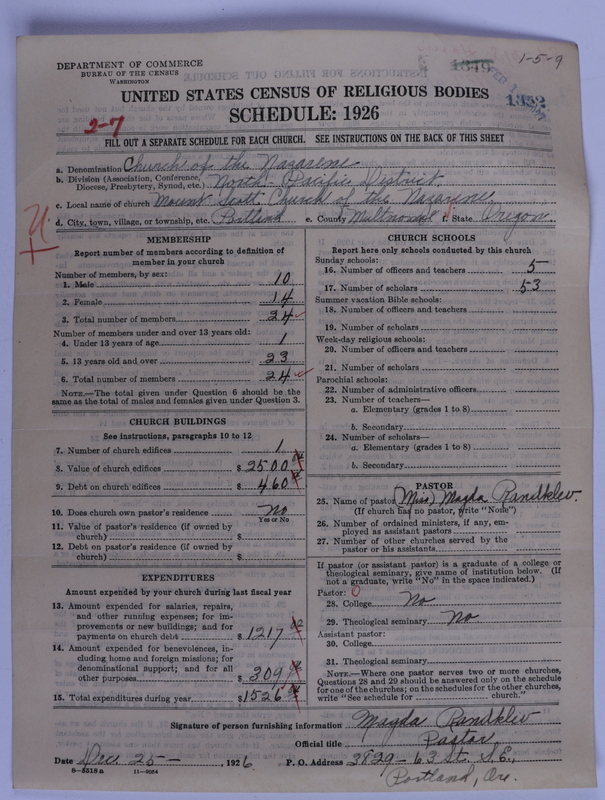 DEPARTMENT OF COMMERCE
BUREAU OF THE CENSUS
WASHINGTON
1-5-9
1349
1352
UNITED STATES CENSUS OF RELIGIOUS BODIES
SCHEDULE: 1926
2-7
FILL OUT A SEPARATE SCHEDULE FOR EACH CHURCH. SEE INSTRUCTIONS ON THE BACK OF THIS SHEET
a. Denomination Church of the Nazarene
b. Division (Association, Conference, Diocese, Presbytery, Synod, etc.) North Pacific District
c. Local name of church Mount Scott Church of the Nazarene
d. City, town, village, or township, etc. Portland e. County Multnomah f. State Oregon
MEMBERSHIP
Report number of members according to definition of
member in your church
Number of members, by sex:
1. Male 10
2. Female 14
3. Total number of members 24
Number of members under and over 13 years old:
4. Under 13 years of age 1
5. 13 years old and over 23
6. Total number of members 24
NOTE.—The total given under Question 6 should be the
same as the total of males and females given under Question 3.
CHURCH BUILDINGS
See instructions, paragraphs 10 to 12
7. Number of church edifices 1
8. Value of church edifices $ 2500
9. Debt on church edifices $ 460
10. Does church own pastor's residence No
Yes or No
11. Value of pastor's residence (if owned by
church) $
12. Debt on pastor's residence (if owned by
church) $
EXPENDITURES
Amount expended by your church during last fiscal year
13. Amount expended for salaries, repairs,
and other running expenses; for im-
provements or new buildings; and for
payments on church debt $ 1217
14. Amount expended for benevolences, in-
cluding home and foreign missions; for
denominational support; and for all
other purposes $ 309
15. Total expenditures during year $ 1526
CHURCH SCHOOLS
Report here only schools conducted by this church
Sunday schools:
16. Number of officers and teachers 5
17. Number of scholars 53
Summer vacation Bible schools:
18. Number of officers and teachers
19. Number of scholars
Week-day religious schools:
20. Number of officers and teachers
21. Number of scholars
Parochial schools:
22. Number of administrative officers
23. Number of teachers—
a. Elementary (grades 1 to 8)
b. Secondary
24. Number of scholars—
a. Elementary (grades 1 to 8)
b. Secondary
PASTOR
25. Name of pastor (Miss) Magda Randklev
(If church has no pastor, write "None")
26. Number of ordained ministers, if any, em-
ployed as assistant pastors
27. Number of other churches served by the
pastor or his assistants
If pastor (or assistant pastor) is a graduate of a college or
theological seminary, give name of institution below. (If
not a graduate, write "No" in the space indicated.)
Pastor: 0
28. College No
29. Theological seminary No
Assistant pastor:
30. College
31. Theological seminary
NOTE.—Where one pastor serves two or more churches,
Questions 28 and 29 should be answered only on the schedule
for one of the churches; on the schedules for the other churches,
write "See schedule for church."
Signature of person furnishing information Magda Randklev
Official title Pastor
Date Dec 25 —, 1926 P. O. Address 3829 - 63 St. S.E.,
8-5318 a 11-9034 Portland, Ore.